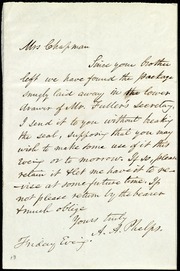 Mrs Chapman
Since your brother
left we have found the package
snugly laid away in the lower
drawer of Mr. Fuller's secretary.
I send it to you without breaking
the seal, supposing that you may
wish to make some use of it this
eveing or to morrow. If so, please
return it & let me have it to re-
vise at some future time. If
not please return by the bearer
& much oblige
Yours truly
A. A. Phelps.
Friday Eveg.